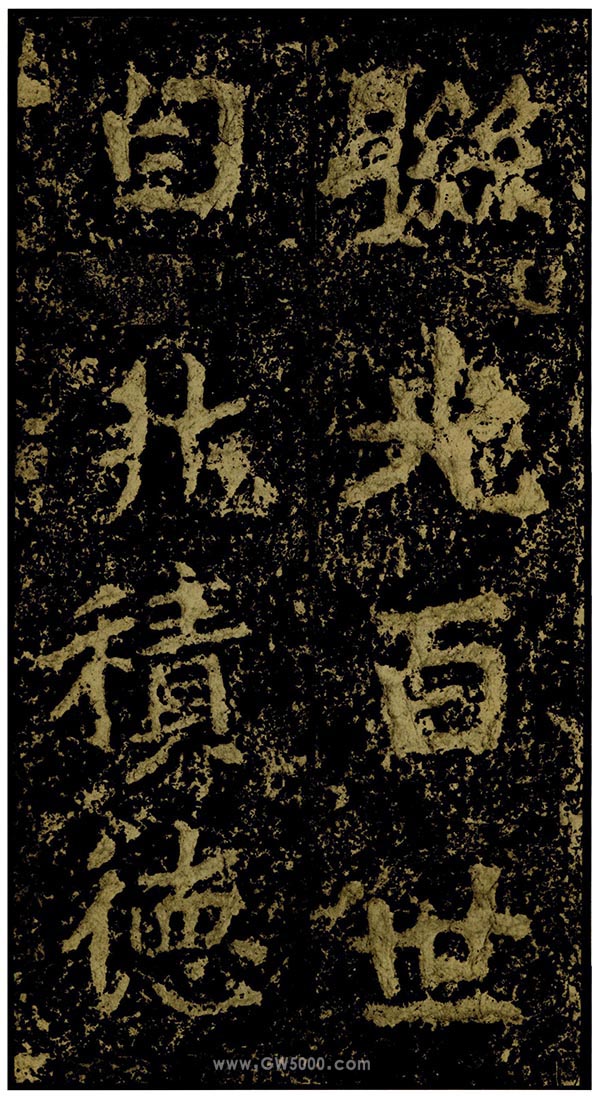 聯光百世
自非積德
www.GW5000.com